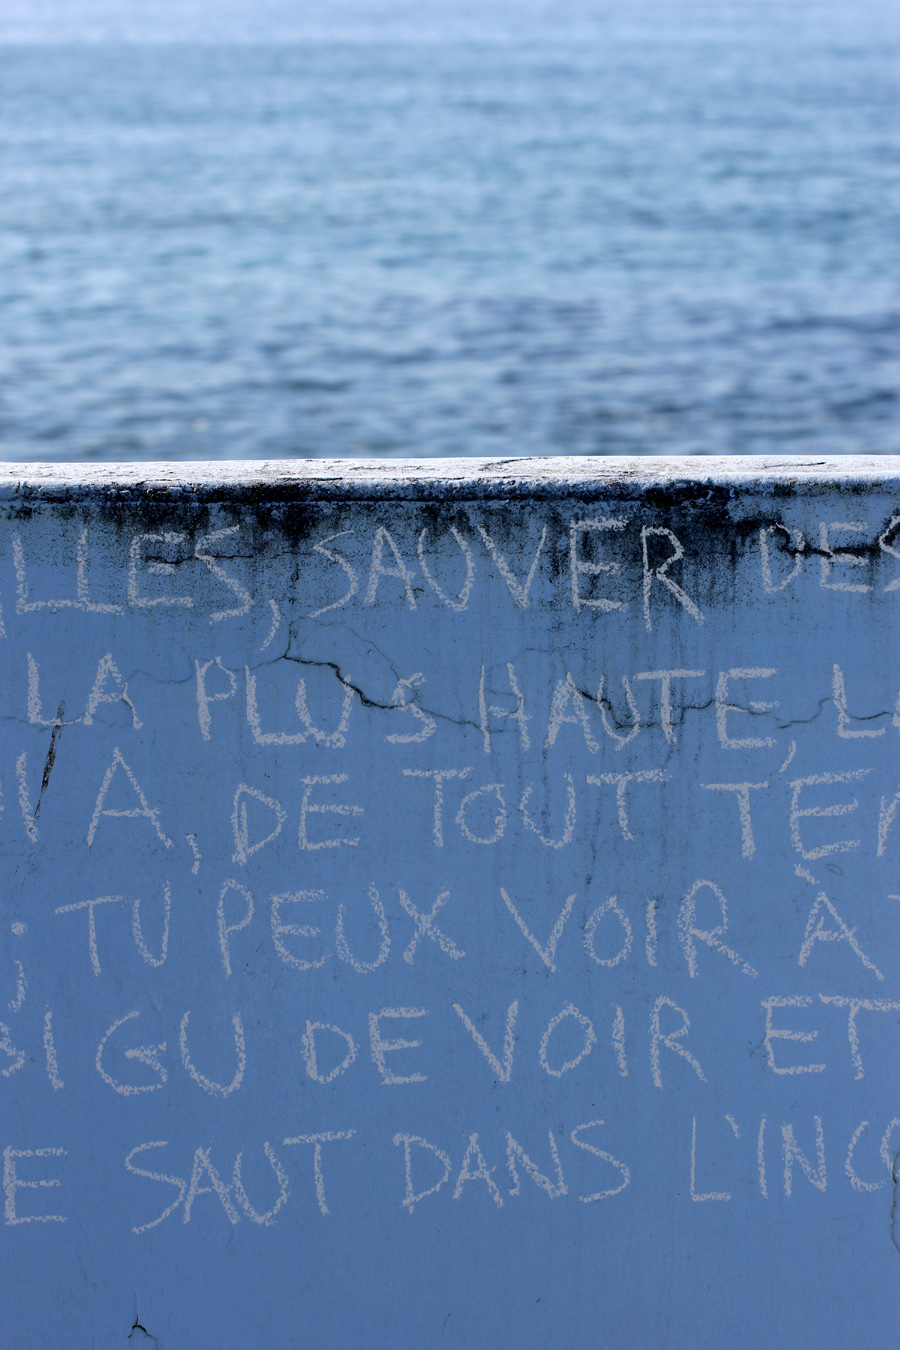 LLES, SAUVER DES
LA PLUS HAUTE, LA
VA, DE TOUT TEM
; TU PEUX VOIR À T
BIGU DE VOIR ET
E SAUT DANS L'INCO